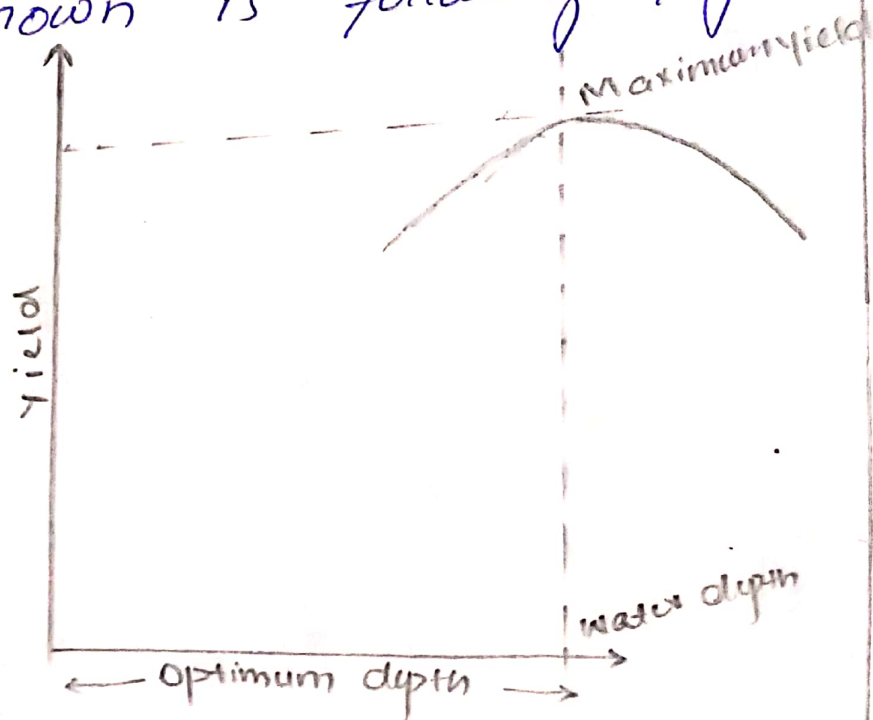 nown is
Maximum yield
Yield
water depth
Optimum depth